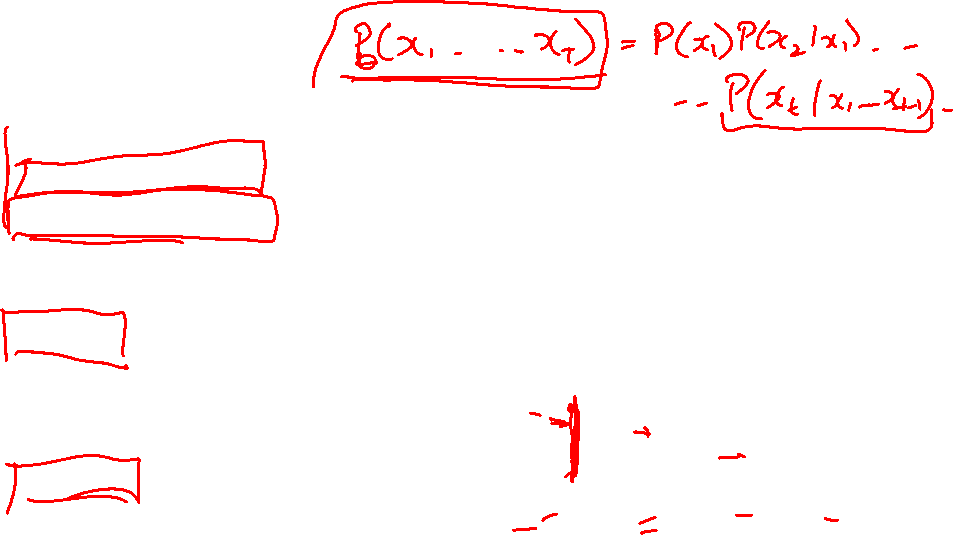 P(x₁ - .. x_T) = P(x₁) P(x₂ | x₁) . -
-- P(x_t | x₁ - x_{t-1}) -